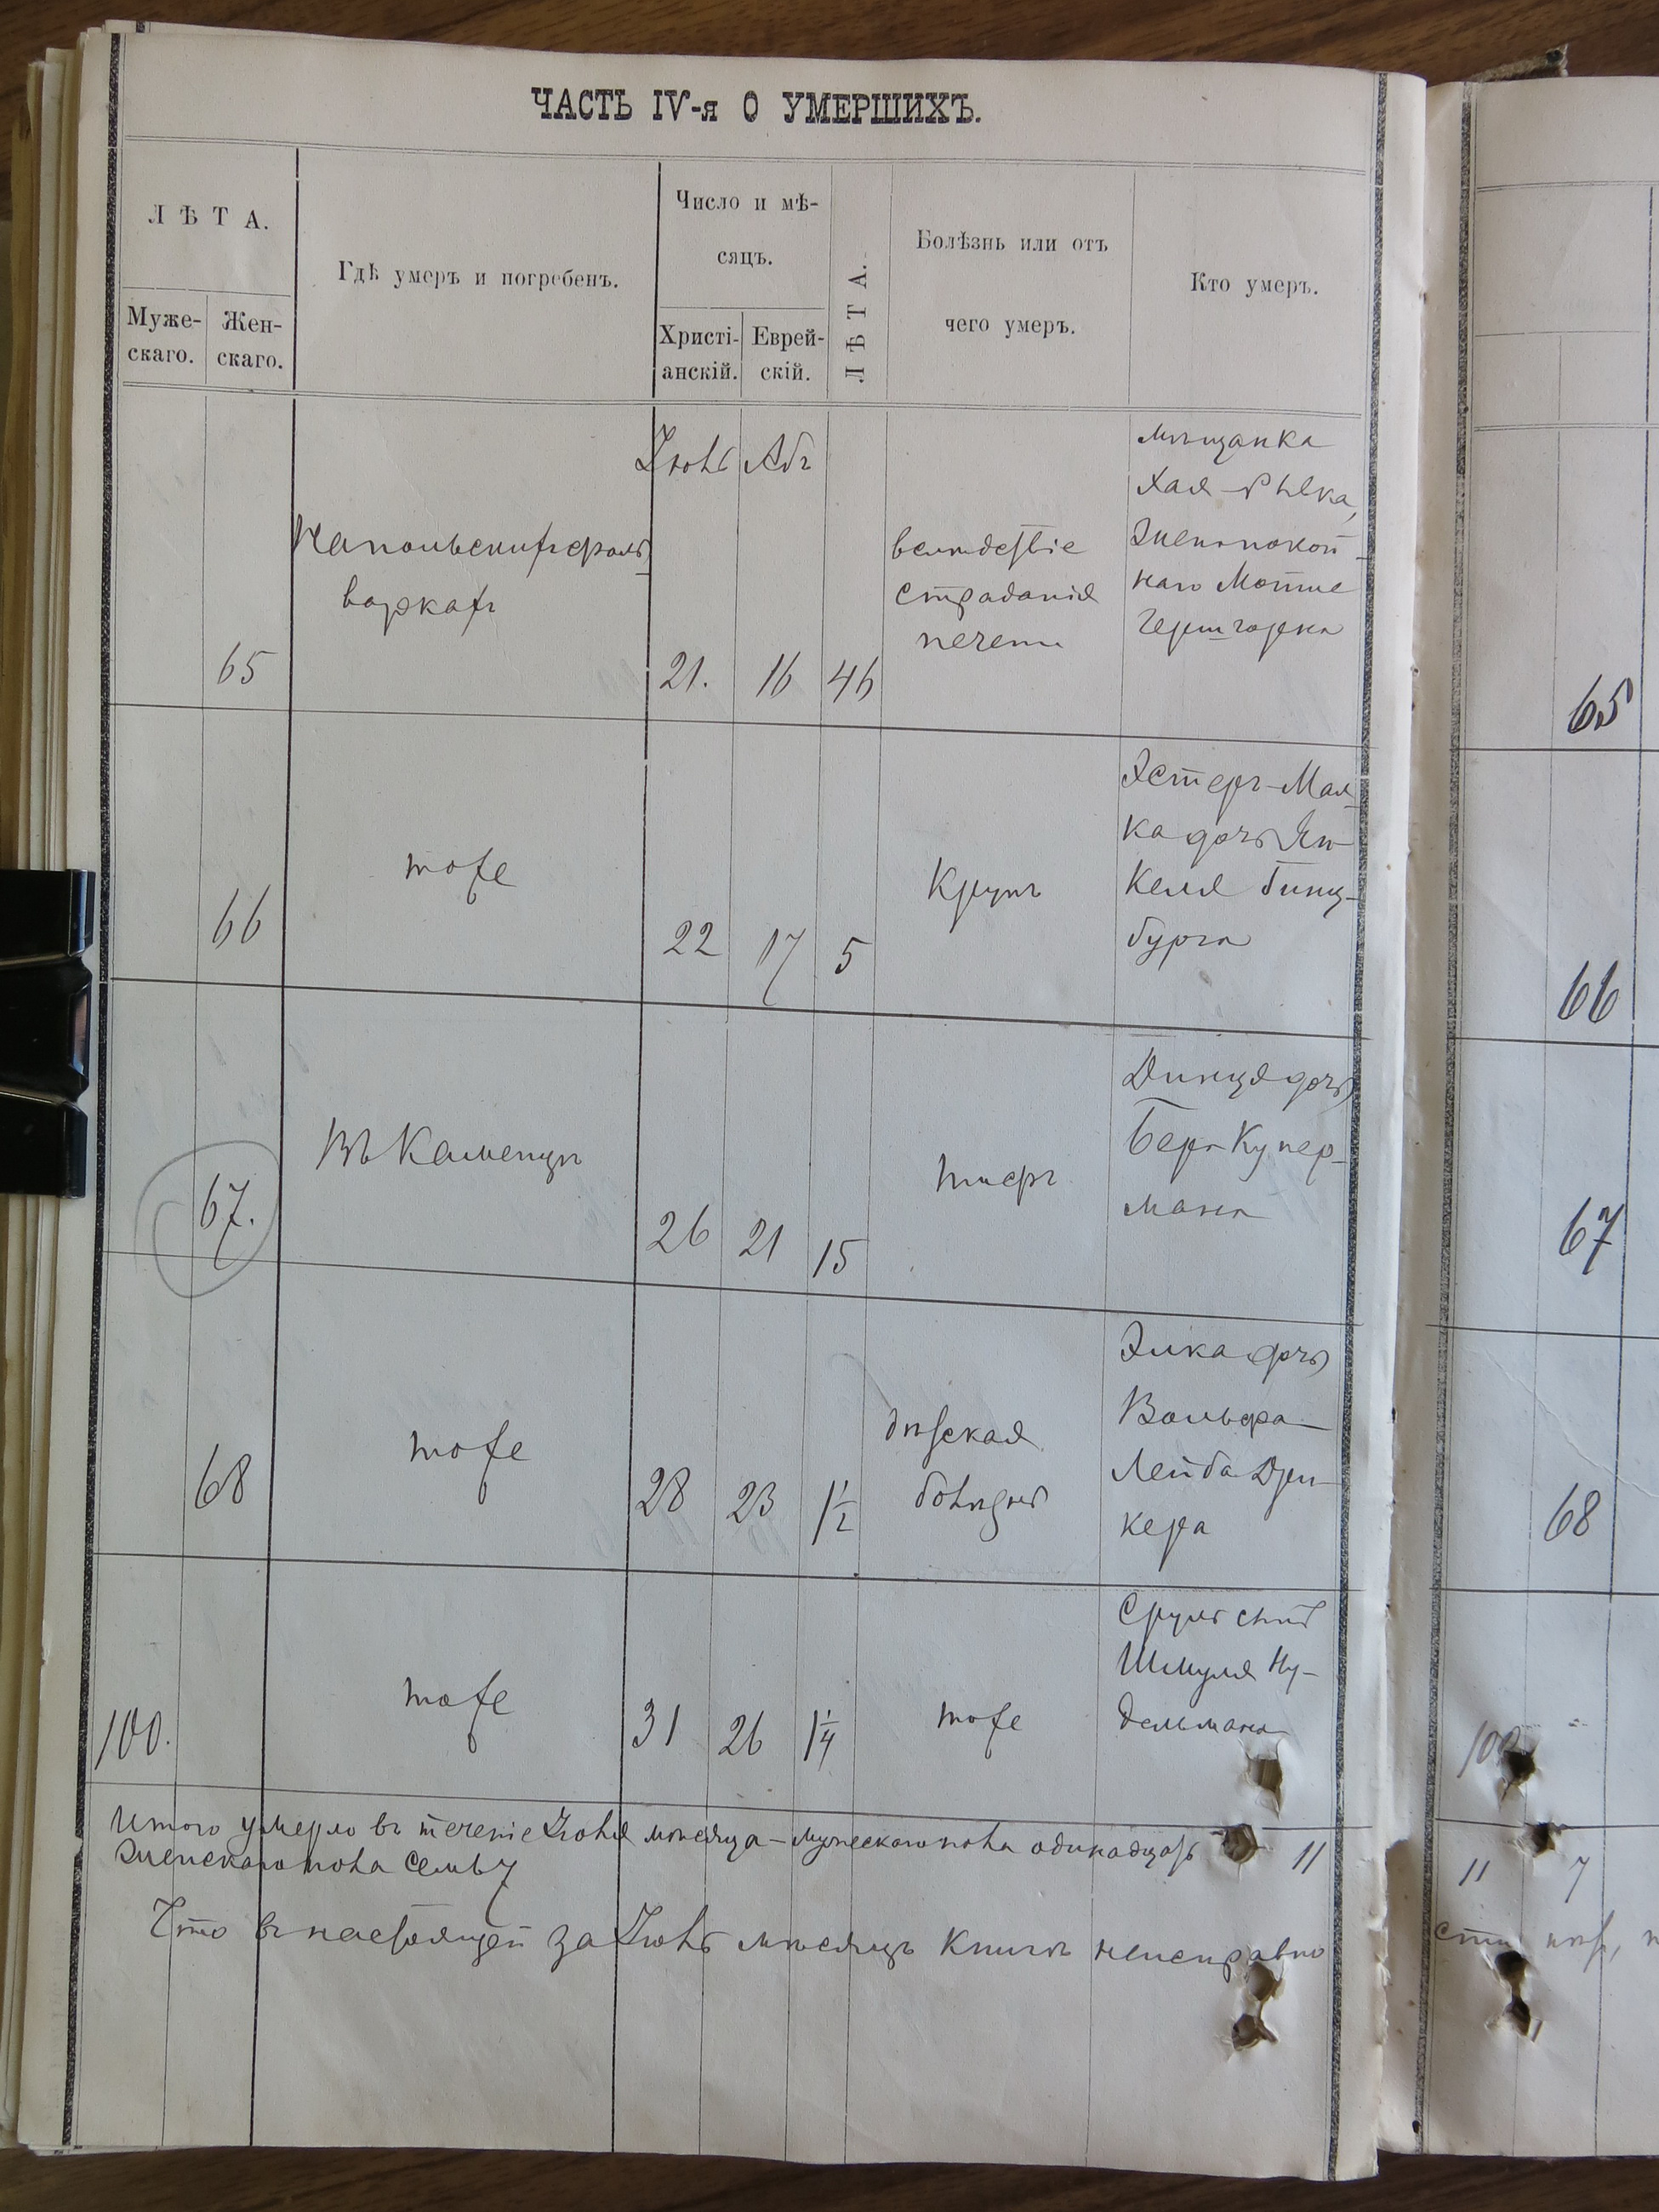 ЧАСТЬ IV-я О УМЕРШИХЪ.
ЛѢТА.
Муже-
скаго.
Жен-
скаго.
Гдѣ умеръ и погребенъ.
Число и мѣ-
сяцъ.
Христі-
анскій.
Еврей-
скій.
ЛѢТА.
Болѣзнь или отъ
чего умеръ.
Кто умеръ.
Іюль Абъ
65
фоль-
варкахъ
21. 16 46
вслѣдствіе
страданія
печени
мѣщанка
Хая-Рывка,
жена покой-
наго Мотие
65
66
тоже
22 17 5
Крупъ
Эстеръ-Мал-
ка дочь Ян-
келя Гинц-
бурга
66
67.
Въ Каменцѣ
26 21 15
тифъ
Динця дочь
Бера Купер-
мана
67
68
тоже
28 23 1 1/2
дѣтская
болѣзнь
Элка дочь
Вольфа-
Лейба Дри-
кера
68
100.
тоже
31 26 1 1/4
тоже
Сруль сынъ
Шмуля Ну-
дельмана
100
Итого умерло въ теченіе Іюля мѣсяца - мужескаго пола одинадцать 11
женскаго пола семь 7
11 7
Что въ настоящей за Іюль мѣсяцъ книгѣ неисправно